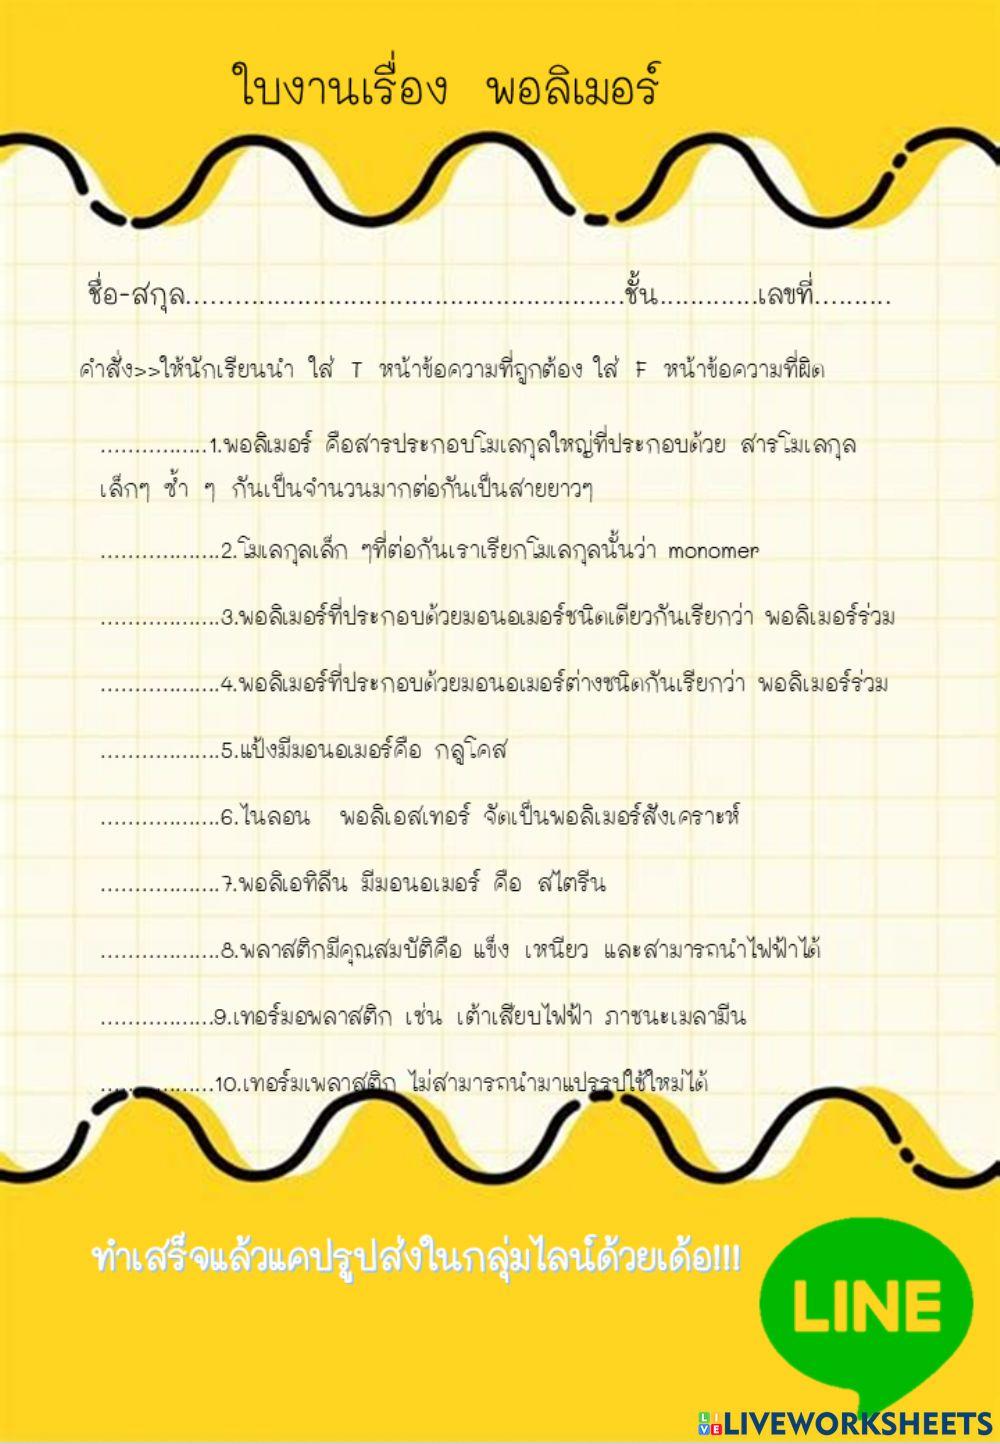 ใบงานเรื่อง พอลิเมอร์
ชื่อ-สกุล.......................................................ชั้น.............เลขที่..........
คำสั่ง>>ให้นักเรียนนำ ใส่ T หน้าข้อความที่ถูกต้อง ใส่ F หน้าข้อความที่ผิด
................1.พอลิเมอร์ คือสารประกอบโมเลกุลใหญ่ที่ประกอบด้วย สารโมเลกุล
เล็กๆ ซ้ำ ๆ กันเป็นจำนวนมากต่อกันเป็นสายยาวๆ
..................2.โมเลกุลเล็ก ๆที่ต่อกันเราเรียกโมเลกุลนั้นว่า monomer
..................3.พอลิเมอร์ที่ประกอบด้วยมอนอเมอร์ชนิดเดียวกันเรียกว่า พอลิเมอร์ร่วม
..................4.พอลิเมอร์ที่ประกอบด้วยมอนอเมอร์ต่างชนิดกันเรียกว่า พอลิเมอร์ร่วม
..................5.แป้งมีมอนอเมอร์คือ กลูโคส
..................6.ไนลอน พอลิเอสเทอร์ จัดเป็นพอลิเมอร์สังเคราะห์
..................7.พอลิเอทิลีน มีมอนอเมอร์ คือ สไตรีน
..................8.พลาสติกมีคุณสมบัติคือ แข็ง เหนียว และสามารถนำไฟฟ้าได้
.................9.เทอร์มอพลาสติก เช่น เต้าเสียบไฟฟ้า ภาชนะเมลามีน
.................10.เทอร์มเพลาสติก ไม่สามารถนำมาแปรรูปใช้ใหม่ได้
ทำเสร็จแล้วแคปรูปส่งในกลุ่มไลน์ด้วยเด้อ!!!
LINE
LIVEWORKSHEETS